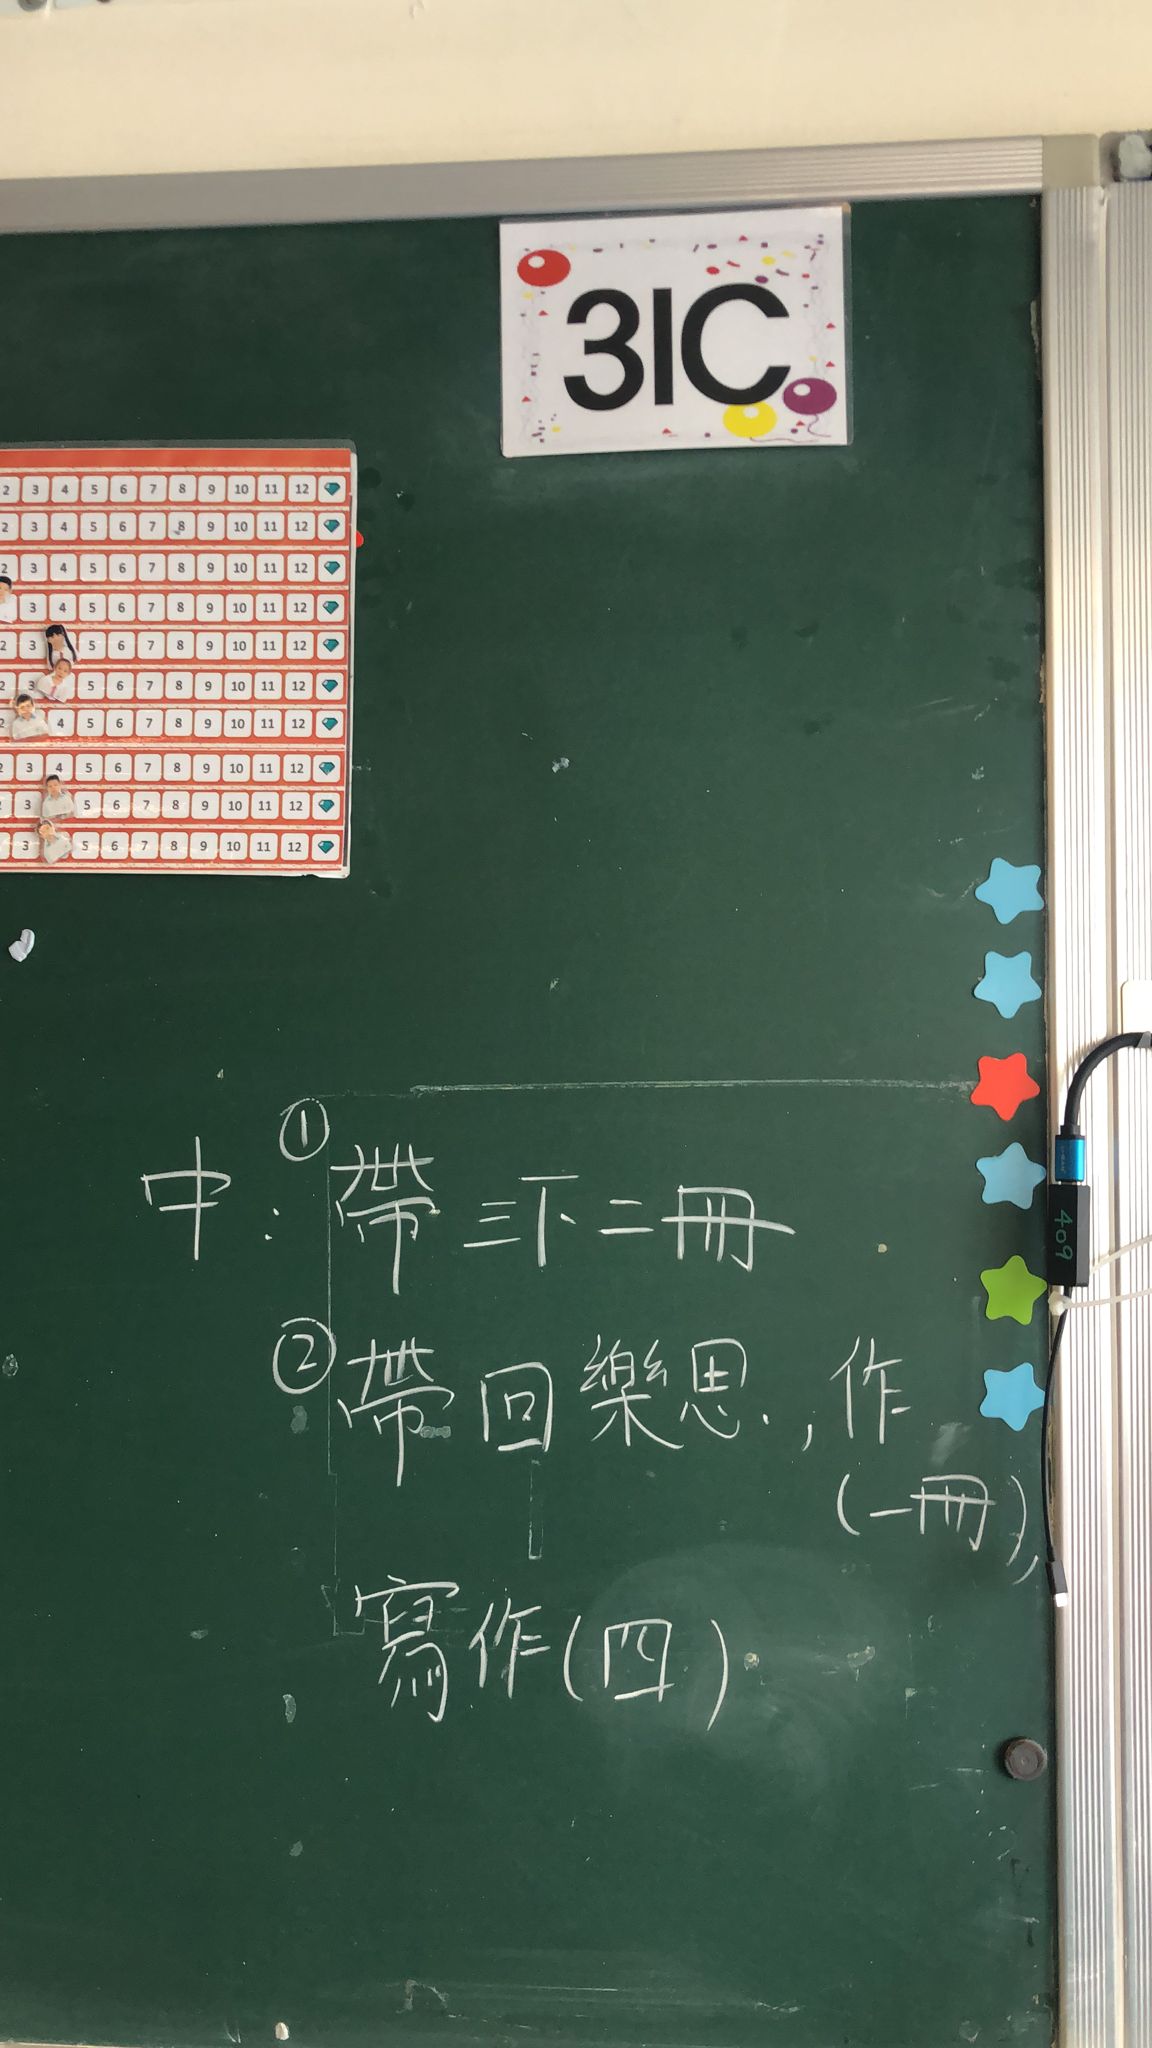 3IC
2 3 4 5 6 7 8 9 10 11 12
2 3 4 5 6 7 8 9 10 11 12
2 3 4 5 6 7 8 9 10 11 12
3 4 5 6 7 8 9 10 11 12
2 3 5 6 7 8 9 10 11 12
2 3 5 6 7 8 9 10 11 12
2 4 5 6 7 8 9 10 11 12
2 3 4 5 6 7 8 9 10 11 12
3 5 6 7 8 9 10 11 12
3 5 6 7 8 9 10 11 12
409
中:①帶三下二冊
②帶回樂思,作
(一冊),
寫作(四)